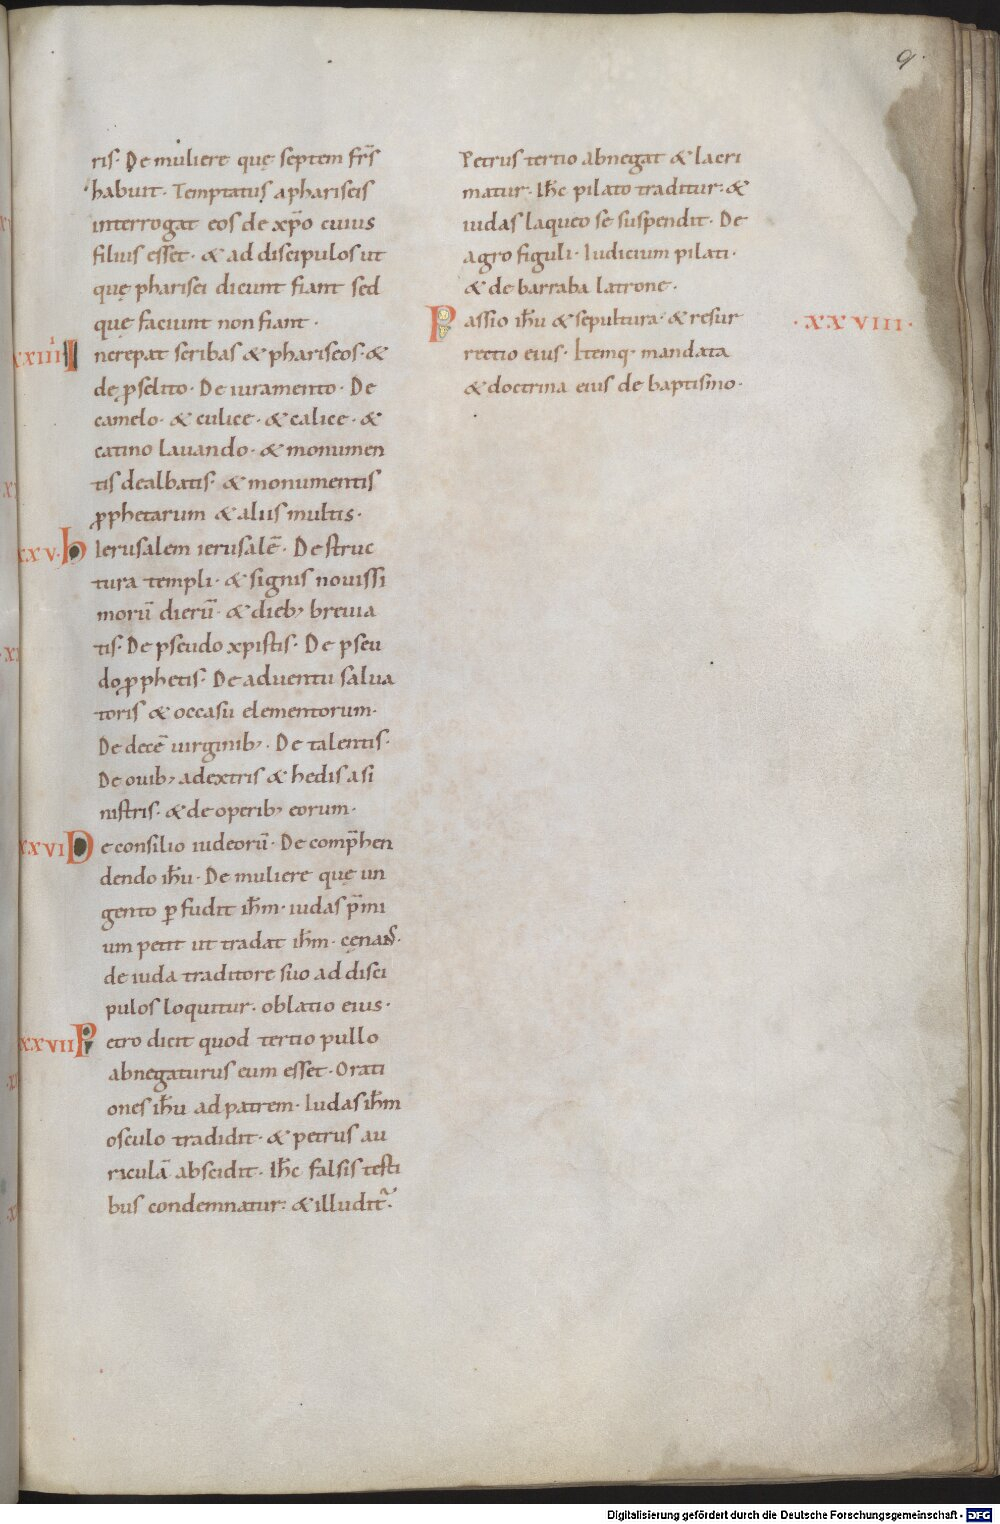 9.
ris. De muliere quę septem fr̄s
habuit. Temptatus a phariseis
interrogat eos de xp̄o cuius
filius esset. & ad discipulos ut
quę pharisei dicunt fiant sed
quę faciunt non fiant.
xxiiii Increpat scribas & phariseos. &
de ꝓselito. De iuramento. De
camelo. & culice. & calice. &
catino lauando. & monumen
tis dealbatis. & monumentis
ꝓphetarum & aliis multis.
xxv. hIerusalem ierusalē. De struc
tura templi. & signis nouissi
morū dierū. & dieb; breuia
tis. De pseudo xpistis. De pseu
do ꝓphetis. De aduentu salua
toris & occasu elementorum.
De decē uirginib;. De talentis.
De ouib; a dextris & hedis a si
nistris. & de operib; eorum.
xxvi De consilio iudeorū. De comp̄hen
dendo ih̄u. De muliere quę un
gento ꝑfudit ih̄m. iudas p̄mi
um petit ut tradat ih̄m. cęnans.
de iuda traditore suo ad disci
pulos loquitur. oblatio eius.
xxvii Petro dicit quod tertio pullo
abnegaturus eum esset. Orati
ones ih̄u ad patrem. Iudas ih̄m
osculo tradidit. & petrus au
riculā abscidit. Ih̄c falsis testi
bus condemnatur. & illudit᷑.
Petrus tertio abnegat & lacri
matur. Ih̄c pilato traditur. &
iudas laqueo se suspendit. De
agro figuli. Iudicium pilati.
& de barraba latrone.
Passio ih̄u & sepultura. & resur .xxviii.
rectio eius. Itemq. mandata
& doctrina eius de baptismo.
Digitalisierung gefördert durch die Deutsche Forschungsgemeinschaft - DFG